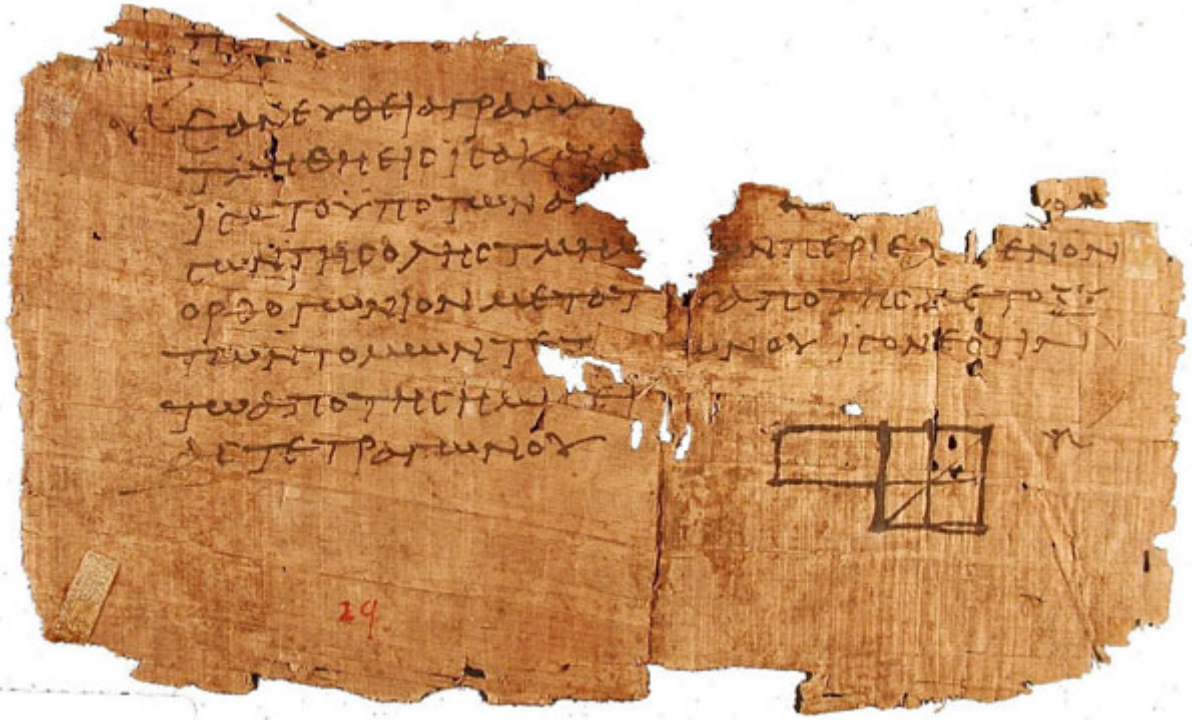 ΕΑΝΕΥΘΕΙΑΓΡΑΜΜ
ΤΜΗΘΗΕΙCΙCΑΚΑΙΑΝ
ΙCΑΤΟΥΠΟΤΩΝΑΝ
CΩΝΤΗCΟΛΗCΤΜΗΜ ΩΝΠΕΡΙΕΧ ΕΝΟΝ
ΟΡΘΟΓΩΝΙΟΝΜΕΤΑΤ ΥΑΠΟΤΗCΜΕΤΟΞΥ
ΤΩΝΤΟΜΩΝΤΕΤ ΩΝΟΥ ΙCΟΝΕCΤΙΝ
ΤΩΑΠΟΤΗCΗΜΙ
ΑCΤΕΤΡΑΓΩΝΟΥ
29